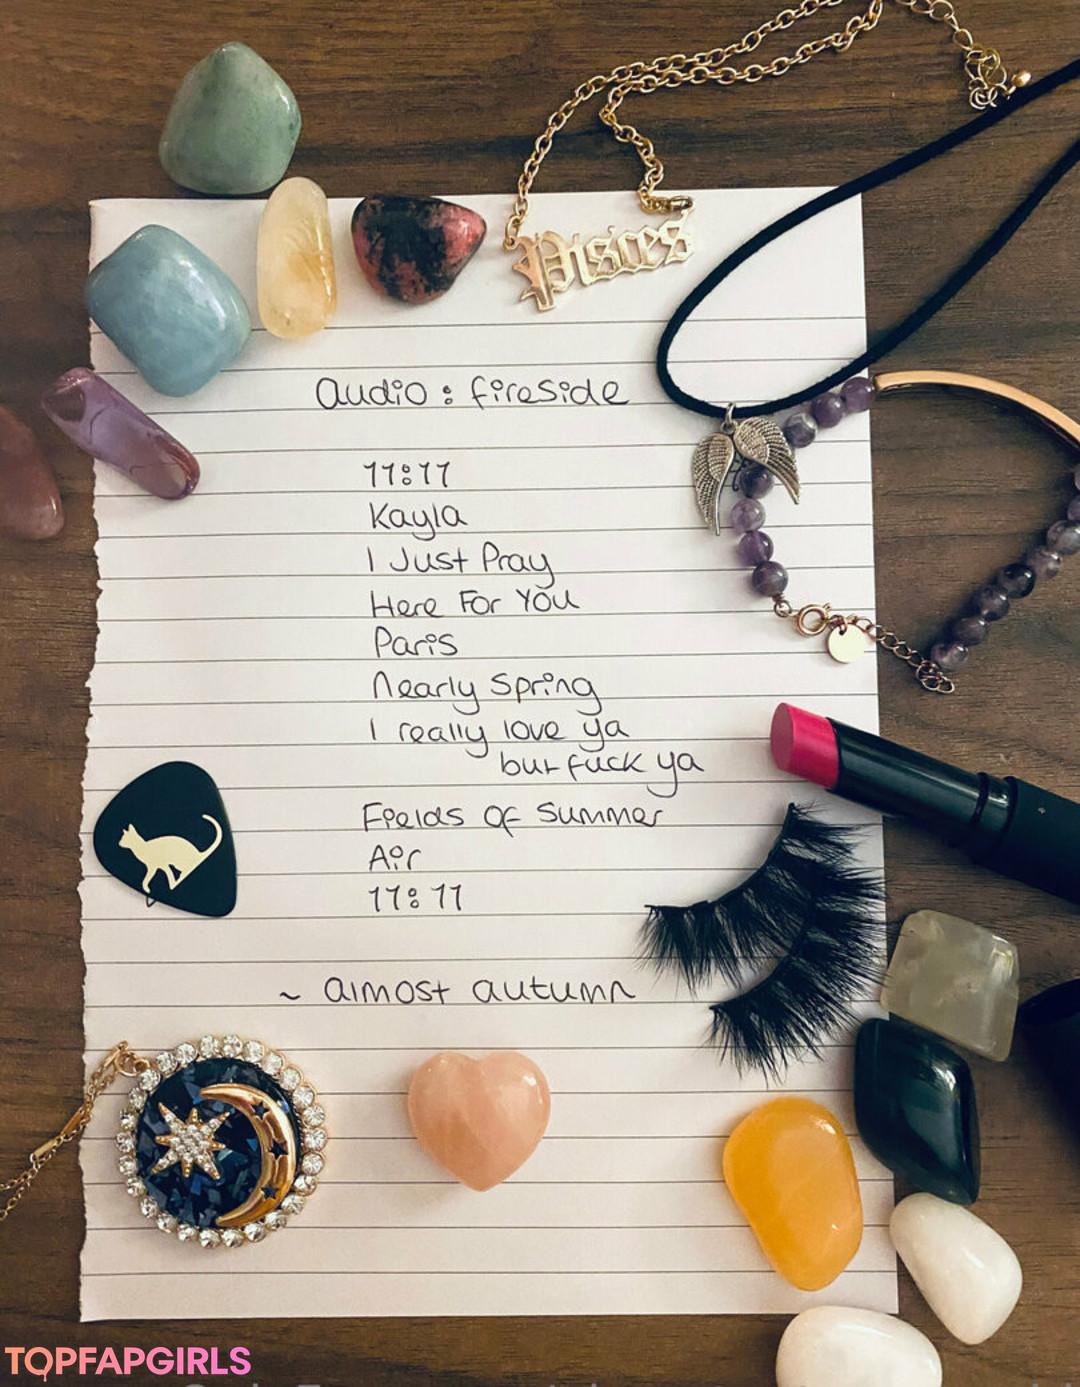 Pisces
audio : fireside
11:11
Kayla
I Just Pray
Here For You
Paris
Nearly Spring
I really love ya
but fuck ya
Fields Of Summer
Air
11:11
~ almost autumn
TOPFAPGIRLS